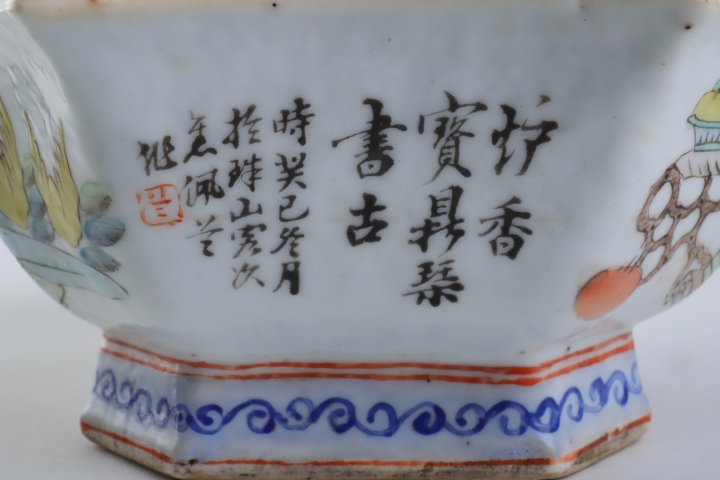 炉香
寳鼎琴
書古
時癸巳冬月
於珠山客次
焦佩兰
作